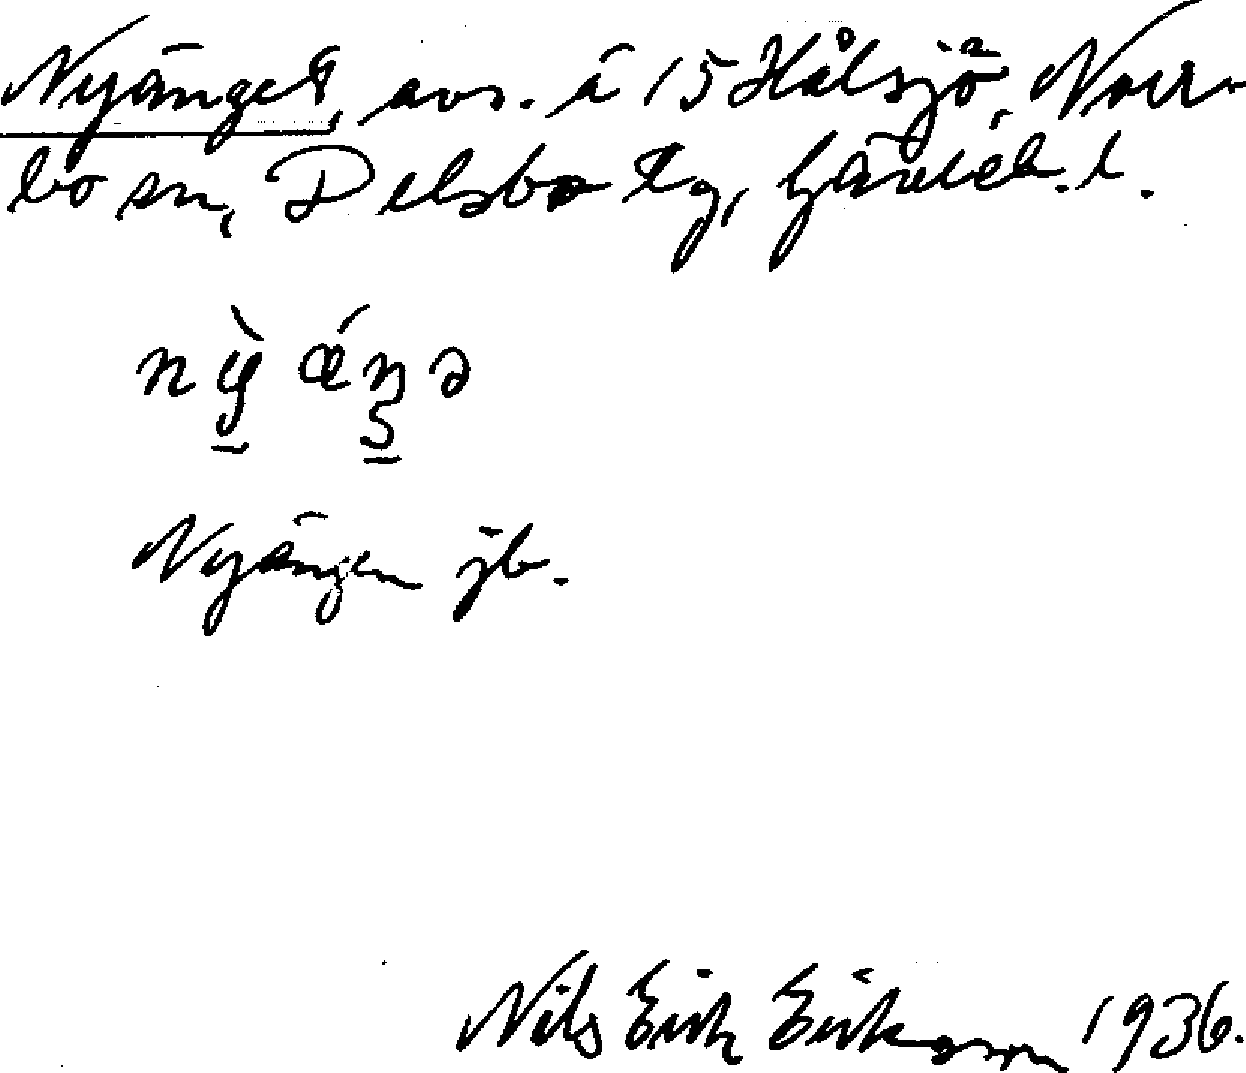 Nyänget, avs. å 15 Hålsjö, Norr-
bo sn, Delsbo tg, Gävleb. l.
nỳ ǽŋə
Nyängen jb.
Nils Erik Eriksson 1936.